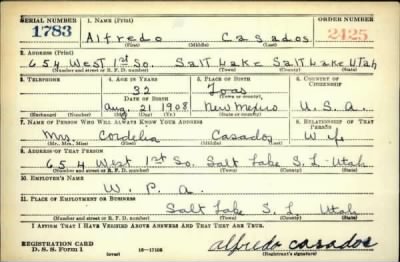 SERIAL NUMBER 1. NAME (Print) ORDER NUMBER
1783 Alfredo Casados 2425
(First) (Middle) (Last)
2. ADDRESS (Print)
654 West 1st So. Salt Lake Salt Lake Utah
(Number and street or R. F. D. number) (Town) (County) (State)
3. TELEPHONE 4. AGE IN YEARS 5. PLACE OF BIRTH 6. COUNTRY OF CITIZENSHIP
32 Toas
DATE OF BIRTH (Town or county)
Aug. 21 1908 New Mexico U.S.A.
(Exchange) (Number) (Mo.) (Day) (Yr.) (State or country)
7. NAME OF PERSON WHO WILL ALWAYS KNOW YOUR ADDRESS 8. RELATIONSHIP OF THAT PERSON
Mrs. Cordelia Casados Wife
(Mr., Mrs., Miss) (First) (Middle) (Last)
9. ADDRESS OF THAT PERSON
654 West 1st So. Salt Lake S. L. Utah
(Number and street or R. F. D. number) (Town) (County) (State)
10. EMPLOYER'S NAME
W. P. A.
11. PLACE OF EMPLOYMENT OR BUSINESS
Salt Lake S. L. Utah
(Number and street or R. F. D. number) (Town) (County) (State)
I AFFIRM THAT I HAVE VERIFIED ABOVE ANSWERS AND THAT THEY ARE TRUE.
REGISTRATION CARD
D. S. S. Form 1 (over) 16-17105 Alfredo Casados
(Registrant's signature)